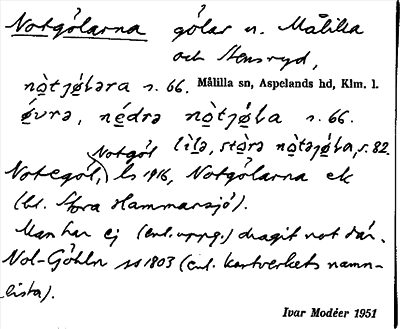 Notgölarna gölar n. Målilla
och Stensryd,
nòtjǿləra s. 66. Målilla sn, Aspelands hd, Klm. l.
ǿvrə, nédrə nòtjǿla s. 66.
Notgöl lìlə, stòrə nòtəjǿla, s. 82.
Notegöl, ls 1916, Notgölarna ek
(bl. Stora Hammarsjö).
Man har ej (enl. uppg.) dragit not där.
Nol-Göhln so 1803 (enl. kartverkets namn-
lista).
Ivar Modéer 1951